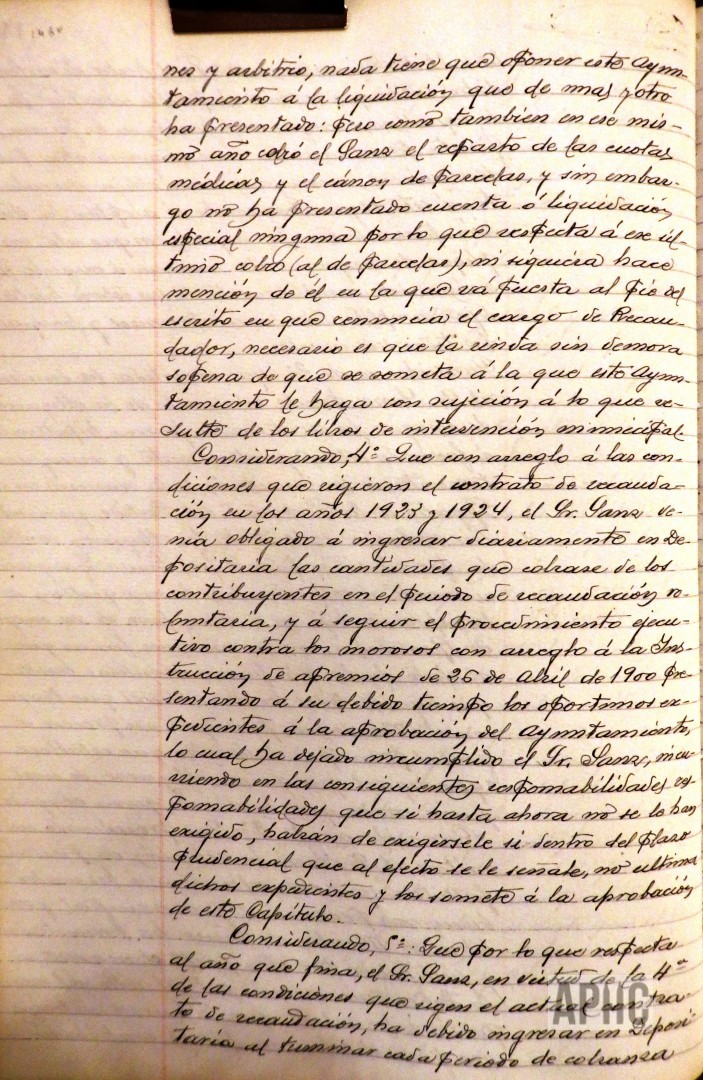 nes y arbitrio, nada tiene que oponer este Ayun-
tamiento á la liquidación que de unas y otro
ha presentado: pero como tambien en ese mis-
mo año cobró el Sanz el reparto de las cuotas
médicas y el cánon de parcelas, y sin embar-
go no ha presentado cuenta ó liquidación
especial ninguna por lo que respecta á ese úl-
timo cobro (al de parcelas), ni siquiera hace
mención de él en la que vá puesta al pié del
escrito en que renuncia el cargo de Recau-
dador, necesario es que la rinda sin demora
sopena de que se someta á la que este Ayun-
tamiento le haga con sujeción á lo que re-
sulte de los libros de intervención municipal.
Considerando, 4º: Que con arreglo á las con-
diciones que rigieron el contrato de recauda-
ción en los años 1923 y 1924, el Sr. Sanz ve-
nía obligado á ingresar diáriamente en De-
positaria las cantidades que cobrase de los
contribuyentes en el período de recaudación vo-
luntaria, y á seguir el procedimiento ejecu-
tivo contra los morosos con arreglo á la Ins-
trucción de apremios de 26 de Abril de 1900 pre-
sentando á su debido tiempo los oportunos ex-
pedientes á la aprobación del Ayuntamiento,
lo cual ha dejado incumplido el Sr. Sanz, incu-
rriendo en las consiguientes responsabilidades res-
ponsabilidades que si hasta ahora no se le han
exigido, habrán de exigírsele si dentro del plazo
prudencial que al efecto se le señale, no ultima
dichos expedientes y los somete á la aprobación
de este Capítulo.
Considerando, 5º: Que por lo que respecta
al año que fina, el Sr. Sanz, en virtud de la 4ª
de las condiciones que rigen el actual contra-
to de recaudación, ha debido ingresar en Deposi-
taría al terminar cada periodo de cobranza
APHC